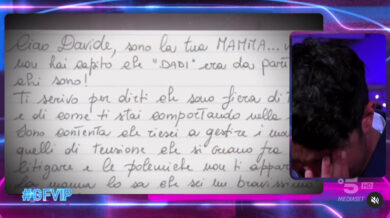 Ciao Davide, sono la tua MAMMA...
non hai capito che "DADI" era da part
chi sono!
Ti scrivo per dirti che sono fiera di
e di come ti stai comportando
Sono contenta che riesci a gestire i
quelli di tensione che si creano fra
litigare e le polemiche non ti appar
mamma lo sa che sei un bravissimo
#GFVIP
5 HD
MEDIASET